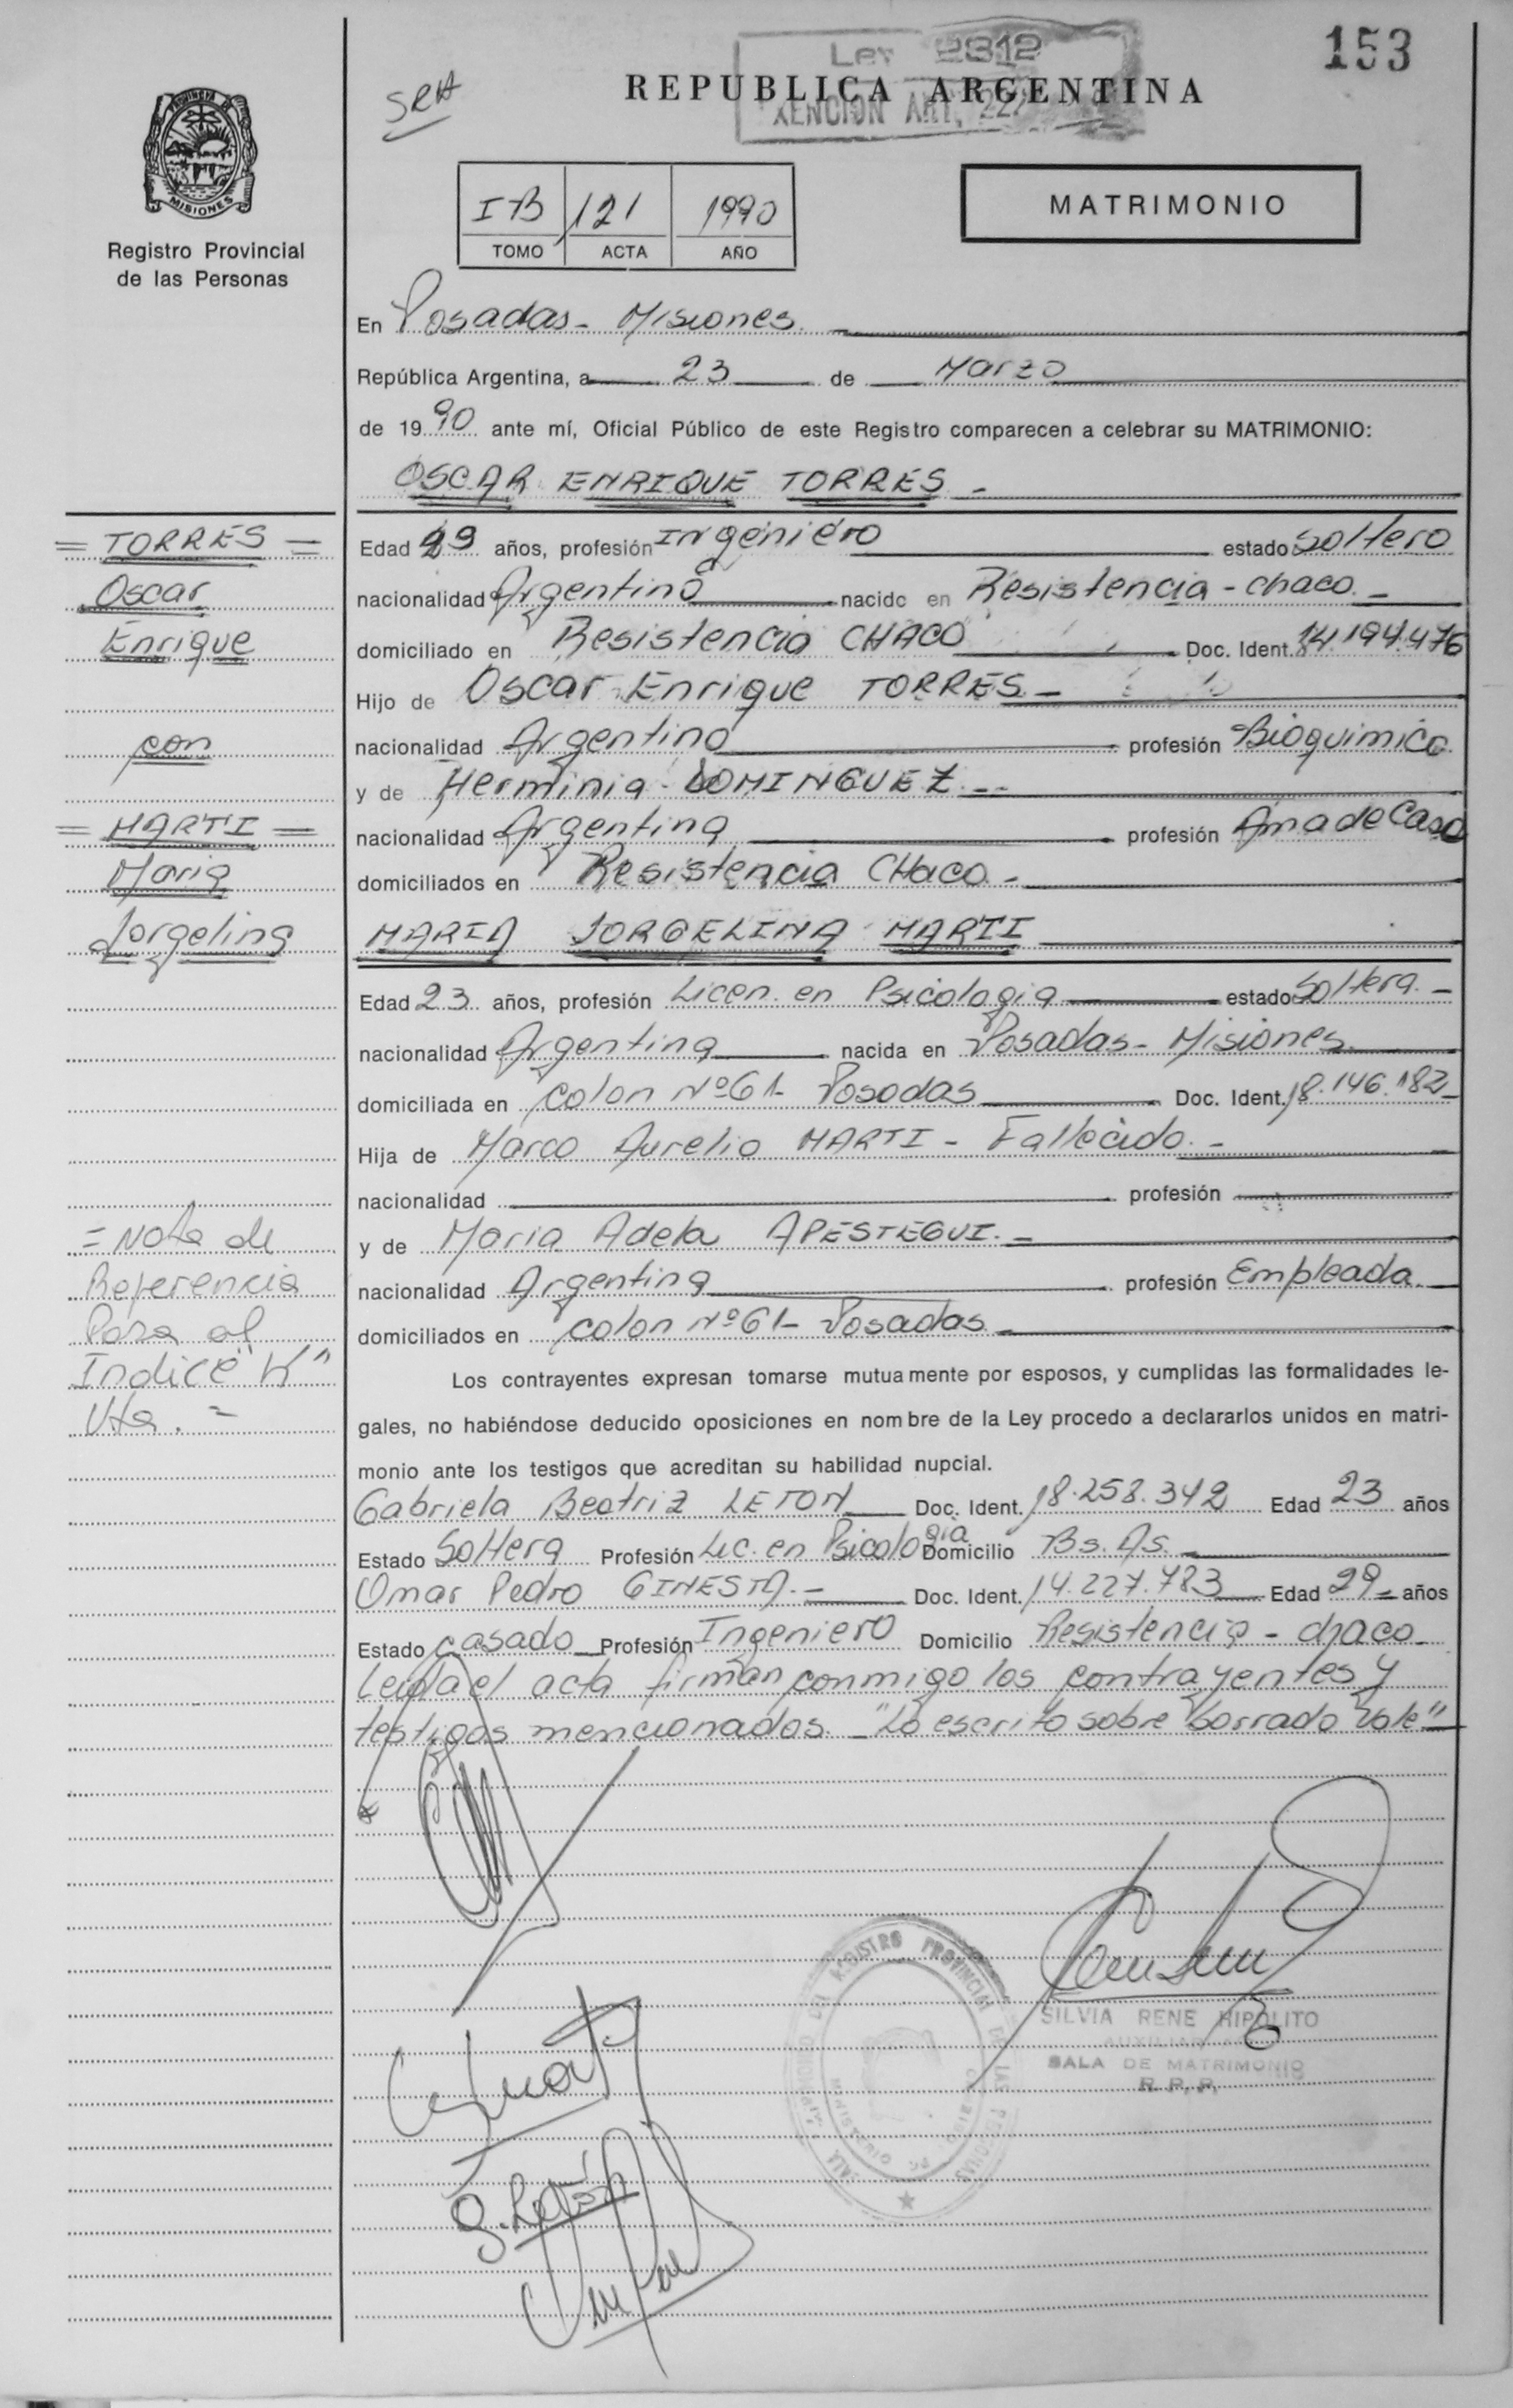 Ley 2312
153
SRH
REPUBLICA ARGENTINA
XENCION ART. 22
PROVINCIA DE
MISIONES
Registro Provincial
de las Personas
I-B 121 1990
TOMO ACTA AÑO
MATRIMONIO
En Posadas - Misiones. -
República Argentina, a 23 de Marzo
de 1990 ante mí, Oficial Público de este Registro comparecen a celebrar su MATRIMONIO:
OSCAR ENRIQUE TORRES -
= TORRES =
Oscar
Enrique
con
= MARTI =
Maria
Jorgelina
Edad 29 años, profesión Ingeniero estado Soltero
nacionalidad Argentino nacido en Resistencia - chaco. -
domiciliado en Resistencia CHACO Doc. Ident. 14.194.476
Hijo de Oscar Enrique TORRES -
nacionalidad Argentino profesión Bioquimico
y de Herminia DOMINGUEZ. --
nacionalidad Argentina profesión Ama de Casa
domiciliados en Resistencia CHaco. -
MARIA JORGELINA MARTI
Edad 23 años, profesión Licen. en Psicologia estado Soltera. -
nacionalidad Argentina nacida en Posadas - Misiones
domiciliada en Colon Nº 61 - Posadas Doc. Ident. 18.146.182
Hija de Marco Aurelio MARTI - Fallecido. -
nacionalidad profesión
y de Maria Adela APESTEGUI. -
nacionalidad Argentina profesión Empleada
domiciliados en Colon Nº 61 - Posadas -
= Nota de
Referencia
Para al
Indice "K"
Vta. =
Los contrayentes expresan tomarse mutuamente por esposos, y cumplidas las formalidades le-
gales, no habiéndose deducido oposiciones en nombre de la Ley procedo a declararlos unidos en matri-
monio ante los testigos que acreditan su habilidad nupcial.
Gabriela Beatriz LETON Doc. Ident. 18.258.342 Edad 23 años
Estado Soltera Profesión Lic. en Psicologia Domicilio Bs. As. -
Omar Pedro GINESTA. - Doc. Ident. 14.227.783 Edad 29 años
Estado casado Profesión Ingeniero Domicilio Resistencia - chaco
Leida el acta firman conmigo los contrayentes y
testigos mencionados. "Lo escrito sobre borrado Vale"
REGISTRO PROVINCIAL DE LAS PERSONAS
MINISTERIO DE GOBIERNO
SILVIA RENE HIPOLITO
AUXILIAR
SALA DE MATRIMONIO
R. P. P.
g. Letón